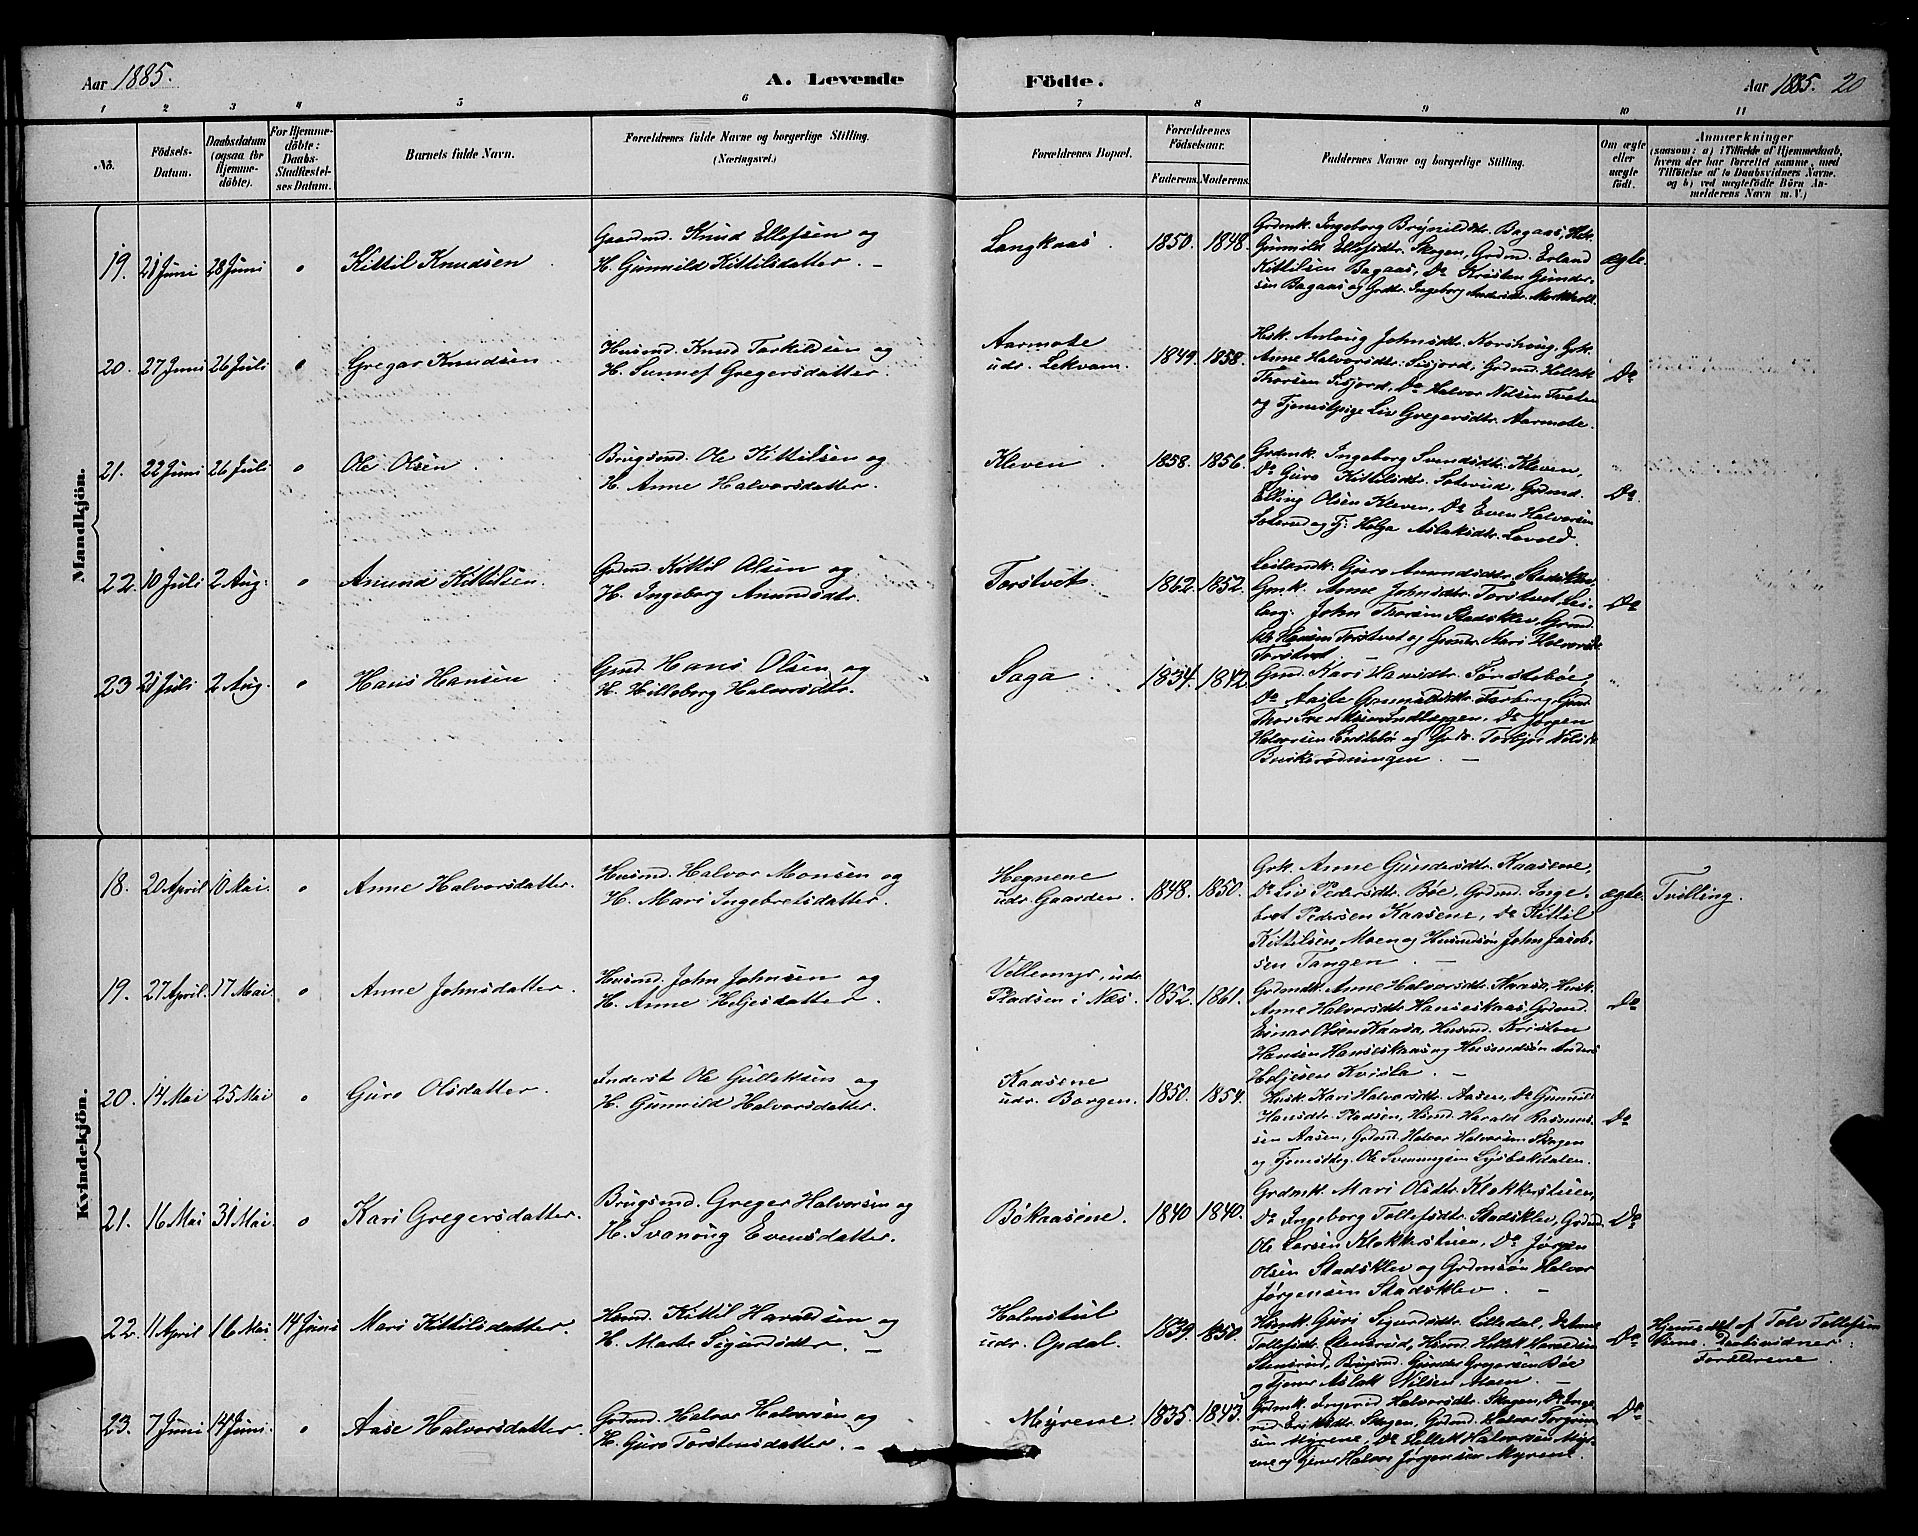 Aar 1885.
A. Levende
Födte.
Aar 1885. 20
1 2 3 4 5 6 7 8 9 10 11
No.
Födsels-
Datum.
Daabsdatum
(ogsaa for
Hjemme-
döbte).
For Hjemme-
döbte:
Daabs-
Stadfæstel-
ses Datum.
Barnets fulde Navn.
Forældrenes fulde Navne og borgerlige Stilling.
(Næringsvei.)
Forældrenes Bopæl.
Forældrenes
Födselsaar.
Faderens. Moderens.
Faddernes Navne og borgerlige Stilling.
Om ægte
eller
uægte
födt.
Anmærkninger
(saasom: a) i Tilfælde af Hjemmedaab,
hvem der har forrettet samme, med
Tilföielse af to Daabsvidners Navne.
og b) ved uægtefödte Börn An-
melderens Navn m. V.)
Mandkjön.
19. 21 Juni 28 Juni o Kittil Knudsen.
Gaardmd. Knud Ellefsen og
H. Gunnild Kittilsdatter. –
Langkaas. 1850. 1848.
Grdmk. Ingeborg Brynildsdtr. Bagaas, Hsk.
Gunnild Ellefsdtr. Skogen, Grdmd. Erland
Kittilsen Bagaas, Do Kristen Gunder-
sen Bagaas og Grdtr. Ingeborg Andersdtr.
ægte.
20. 27 Juni 26 Juli o Gregar Knudsen.
Husmd. Knud Tarkildsen og
H. Sunnef Gregersdatter.
Aarmote
udr. Lekvam. 1849. 1858.
Hsk. Anlaug Johnsdtr.
Anne Halvorsdtr. Sisjord, Grdmd. Hellek
Thorsen Sisjord, Do Halvor Nilsen Tveten
og Tjenestpige Liv Gregersdtr. Aarmote.
Do
21. 22 Juni 26 Juli o Ole Olsen.
Brugsmd. Ole Kittilsen og
H. Anne Halvorsdatter.
Kleven. 1858. 1856.
Grdmk. Ingeborg Svendsdtr. Kleven,
Do Guro Kittilsdtr. Soterud, Grdmd.
Elling Olsen Kleven, Do Even Halvorsen
Soterud og Tj. Helga Aslaksdtr. Lovold.
Do
22. 10 Juli 2 Aug. o Amund Kittilsen.
Grdmd. Kittil Olsen og
H. Ingeborg Amundsdtr.
Torstvet. 1862. 1852.
Leilændk. Guro Amundsdtr. Stadsklev,
Gmk. Anne Johnsdtr. Torstvet, Lei-
læng. John Thorsen Stadsklev, Grmd.
Ole Hansen Torstvet og Grmdtr. Mari Halvorsdtr.
Torstvet. –
Do
23 21 Juli 2 Aug. o Hans Hansen.
Gmd. Hans Olsen og
H. Hilleborg Halvorsdtr.
Saga. 1834. 1842
Gmd. Kari Hansdtr. Forstebøe,
Do Aaste Gunnulsdtr. Forberg, Gmd.
Thor Svenssen Sundlaggen, Do Jørgen
Halvorsen Forstebø og Grdtr. Torbjør Nilsdtr.
Buskerødningen. –
Kvindekjön.
18. 20 April 10 Mai. o Anne Halvorsdatter.
Husmd. Halvor Monsen og
H. Mari Ingebretsdatter.
Hognene
udr. Gaarden. 1848. 1850.
Grk. Anne Gundersdtr. Kaasene,
Do Liv Pedersdtr. Bøe, Grdmd. Inge-
bret Pedersen Kaasene, Do Kittil
Kittilsen Moen og Husmdsøn John Jacob-
sen Tangen. –
ægte. Tvilling.
19. 27 April. 17 Mai. o Anne Johnsdatter.
Husmd. John Johnsen og
H. Anne Heljesdatter.
Vellemyr, udr.
Pladsen i Næs. 1852. 1861.
Grdmdtr. Anne Halvorsdtr. Kaasa, Husk.
Anne Halvorsdtr. Hanseskaas, Grdmd.
Einar Olsen Kaasa, Husmd. Kristen
Hansen Hanseskaas og Husmandsøn Anders
Heljesen Kvisla. –
Do
20. 14 Mai 25 Mai o Guro Olsdatter.
Inderst Ole Gulleksen og
H. Gunnild Halvorsdatter.
Kaasene
udr. Borgen. 1850. 1854.
Husk. Kari Halvorsdtr. Aasen, Do Gunnild
Hansdtr. Pladsen, Husmd. Harald Rasmus-
sen Aasen, Grdmd. Halvor Halvorsen Skogen
og Tjenestkg. Ole Svenningsen Lysbækdalen.
Do
21. 16 Mai 31 Mai. o Kari Gregersdatter.
Brugsmd. Greger Halvorsen og
H. Svanaug Evensdatter.
Bøkaasene. 1840 1840.
Grdmk. Mari Olsdtr. Klokkerstuen,
Do Ingeborg Tollefsdtr. Stadsklev, Grdmd.
Ole Larsen Klokkerstuen, Do Jørgen
Olsen Stadsklev og Grdmsøn Halvor
Jørgensen Stadsklev. –
Do
22. 11 April 16 Mai 14 Juni Mari Kittilsdatter.
Husmd. Kittil Haraldsen og
H. Marte Sigurdsdtr. –
Holmstul
udr. Opdal. 1839. 1850.
Husmk. Guri Sigurdsdtr. Lilledal, Do Anne
Tollefsdtr. Stensrud, Husmd. Hellek Haraldsen
Stensrud, Brugsmd. Gunder Gregersen Bøe
og Tjener Aslak Nilsen Moen. –
Do
Hjemmedøbt af Tov Tollefsen
Daabsvidner:
Forældrene.
23. 7 Juni 14 Juni. o Aase Halvorsdatter.
Grdmd. Halvor Halvorsen og
H. Guro Torstensdatter. –
Myrene 1835. 1843.
Grdmk. Ingerid Halvorsdtr. Skogen, Do Inge-
rid Eriksdtr. Skogen, Grdmd. Halvor Torgrim-
sen Myrene, Do Hellek Halvorsen Myr-
ene og Tjener Halvor Jørgensen Myrene.
Do